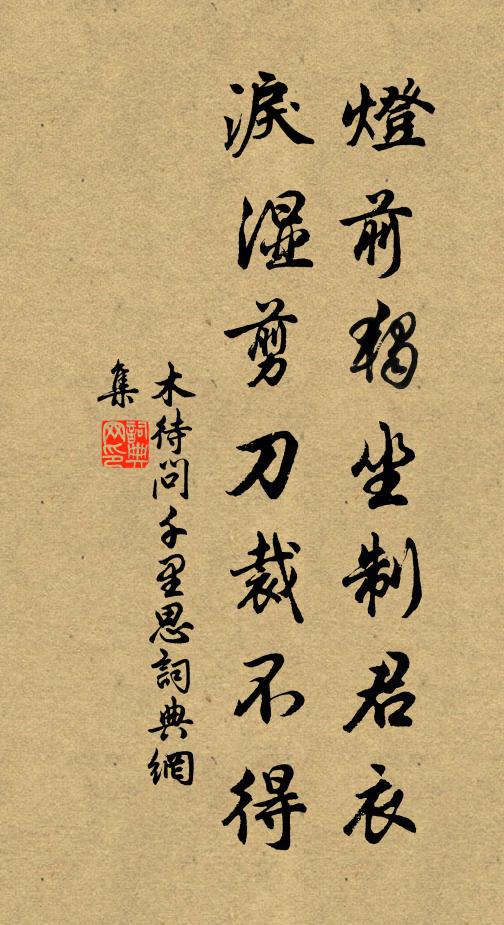 燈前獨坐制君衣
淚濕剪刀裁不得
木待問千里思詞典網
集
詞典网印